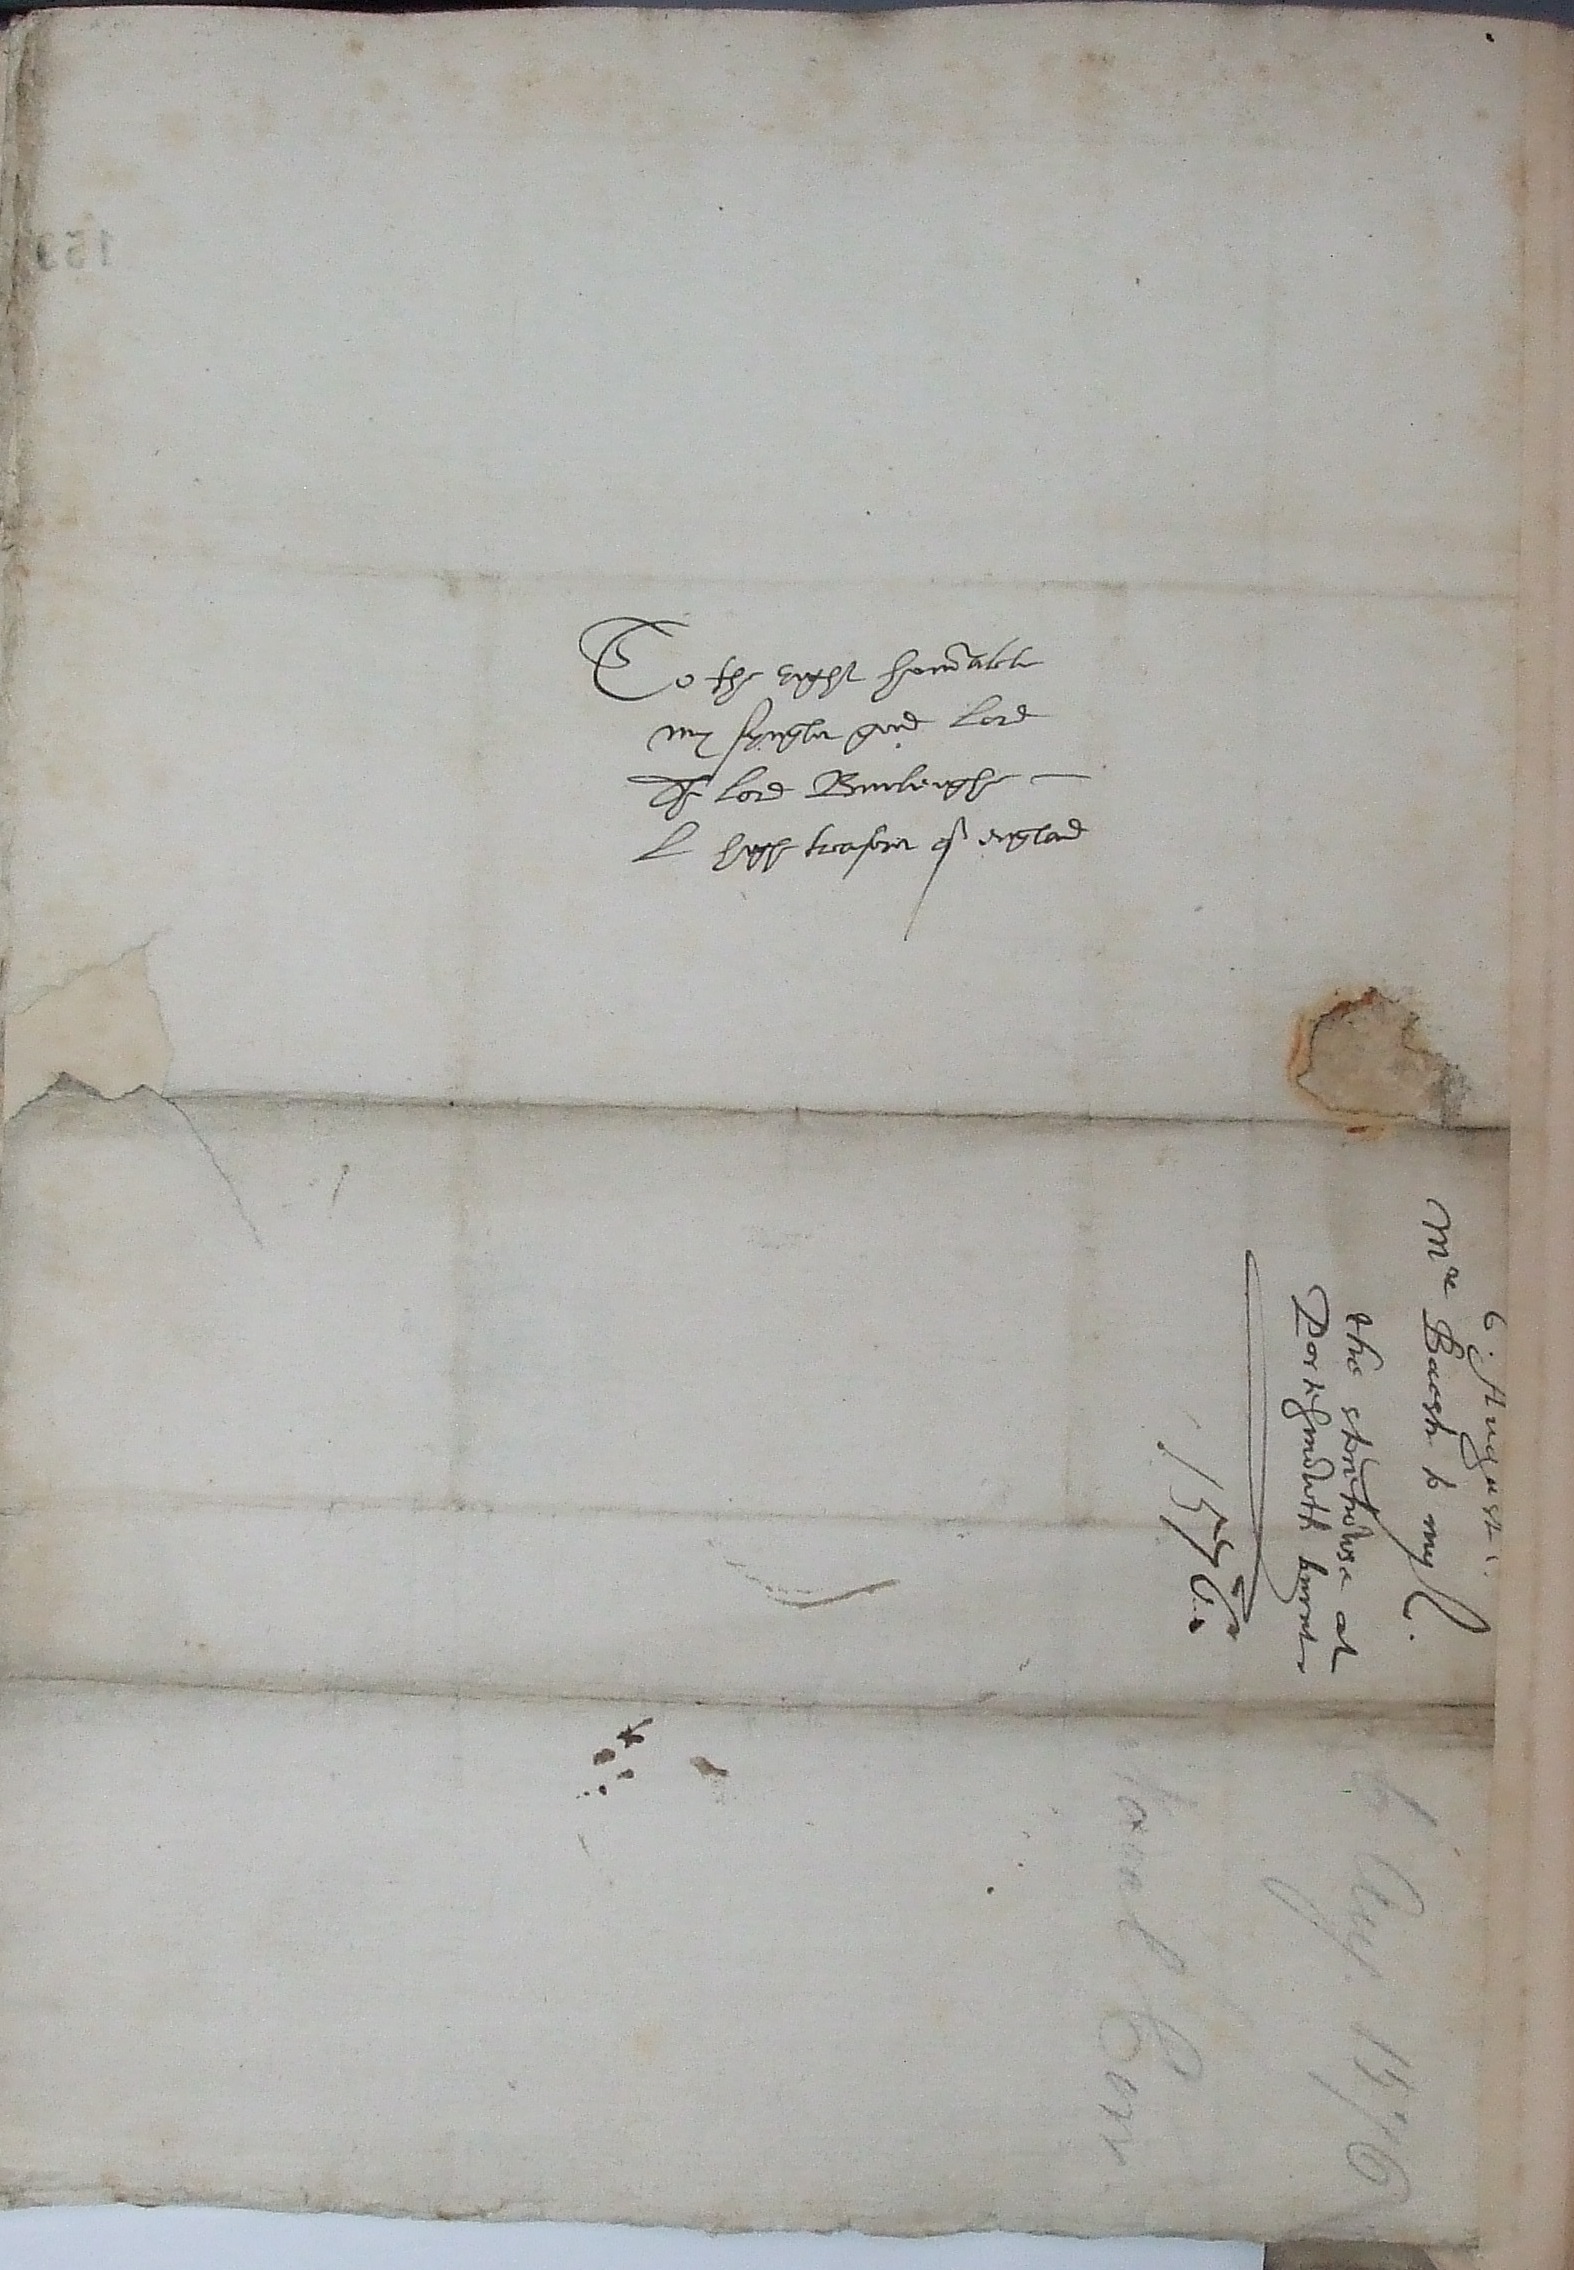 To the right hon̄able
my synguler good Lord
The lord Burleighe
L highe treasorer of england
6. August.
Mr Baesh to my L.
the storehowse at
Portesmowth burnt
1576.
6 Aug. 1576
153